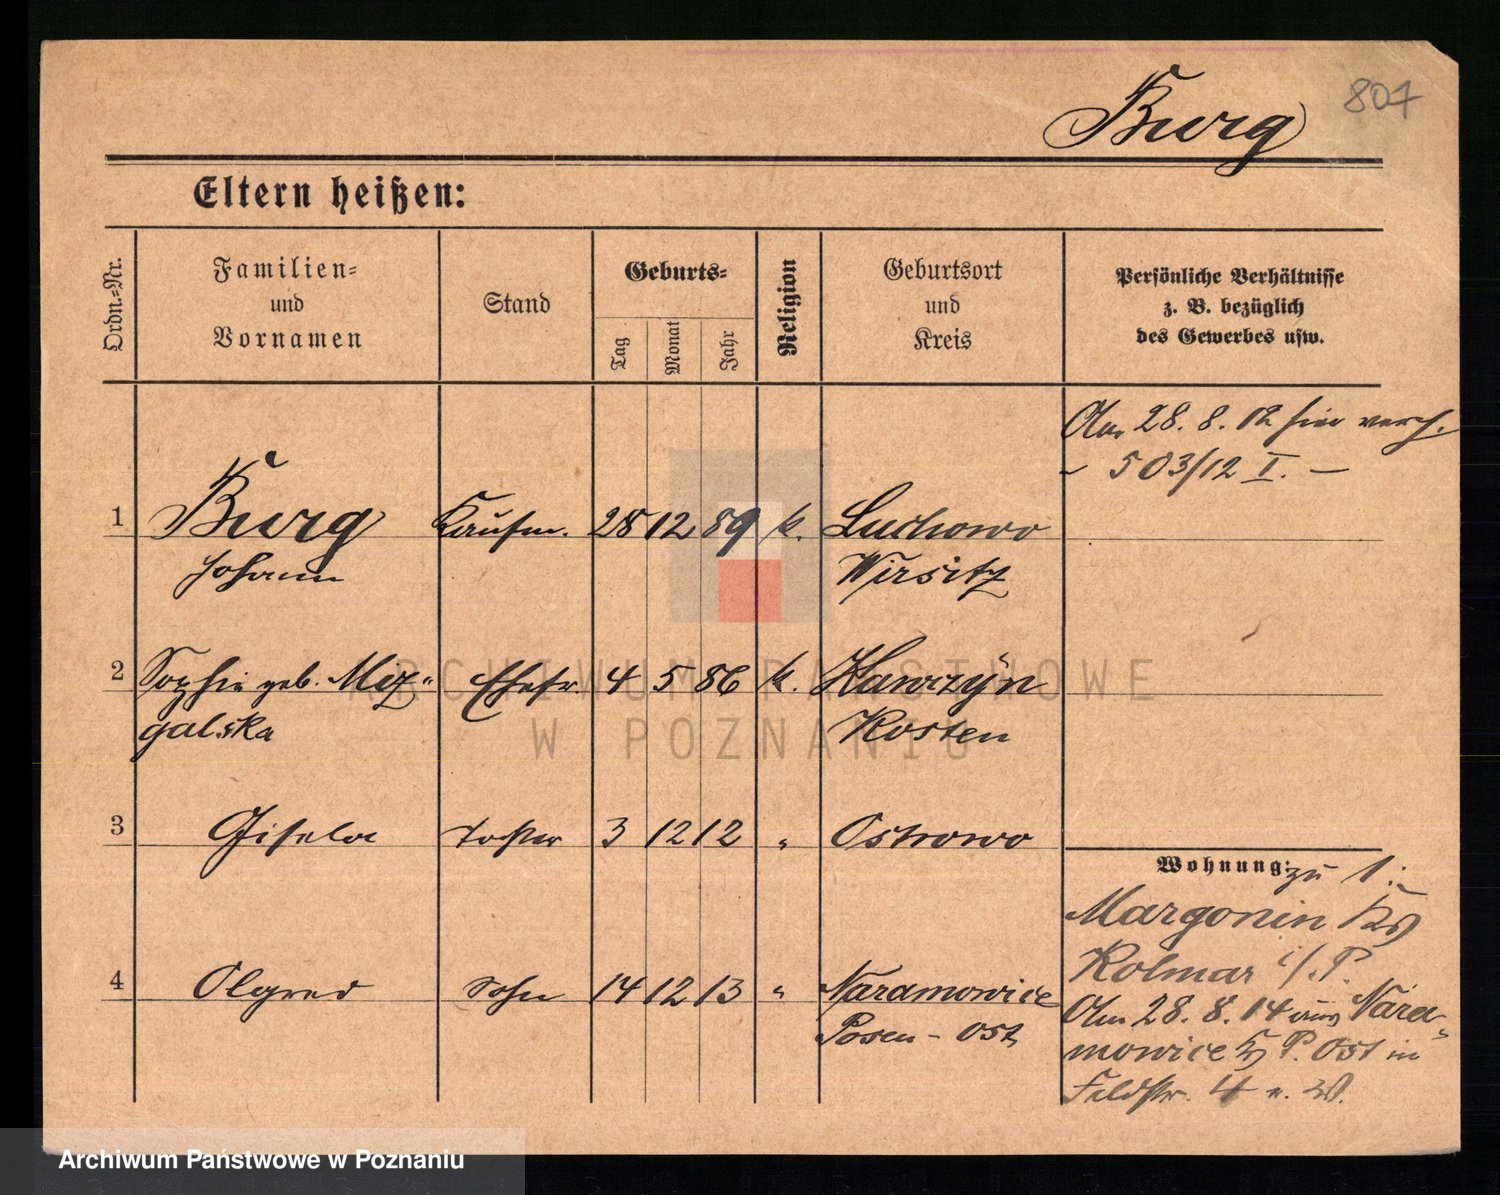 Burg
807
Eltern heißen:
Ordn.-Nr.
Familien-
und
Vornamen
Stand
Geburts-
Tag
Monat
Jahr
Religion
Geburtsort
und
Kreis
Persönliche Verhältnisse
z. B. bezüglich
des Gewerbes usw.
Am 28. 8. 12 hier verh.
- 503/12 I. -
1 Burg Kaufm. 28 12 89 k. Luchowo
Johann Wirsitz
2 Sophie geb. Miz- Ehefr. 4 5 86 k. Kawczyn
galska Kosten
3 Gisela Tochter 3 12 12 " Ostrowo
Wohnung: zu 1:
Margonin Krs
Kolmar i/P.
4 Sohn 14 12 13 " Naramowice
Posen - Ost
Am 28. 8. 14 aus Nara-
mowice Krs P. Ost in
Feldstr. 4 n. W.
ARCHIWUM PAŃSTWOWE
W POZNANIU
Archiwum Państwowe w Poznaniu